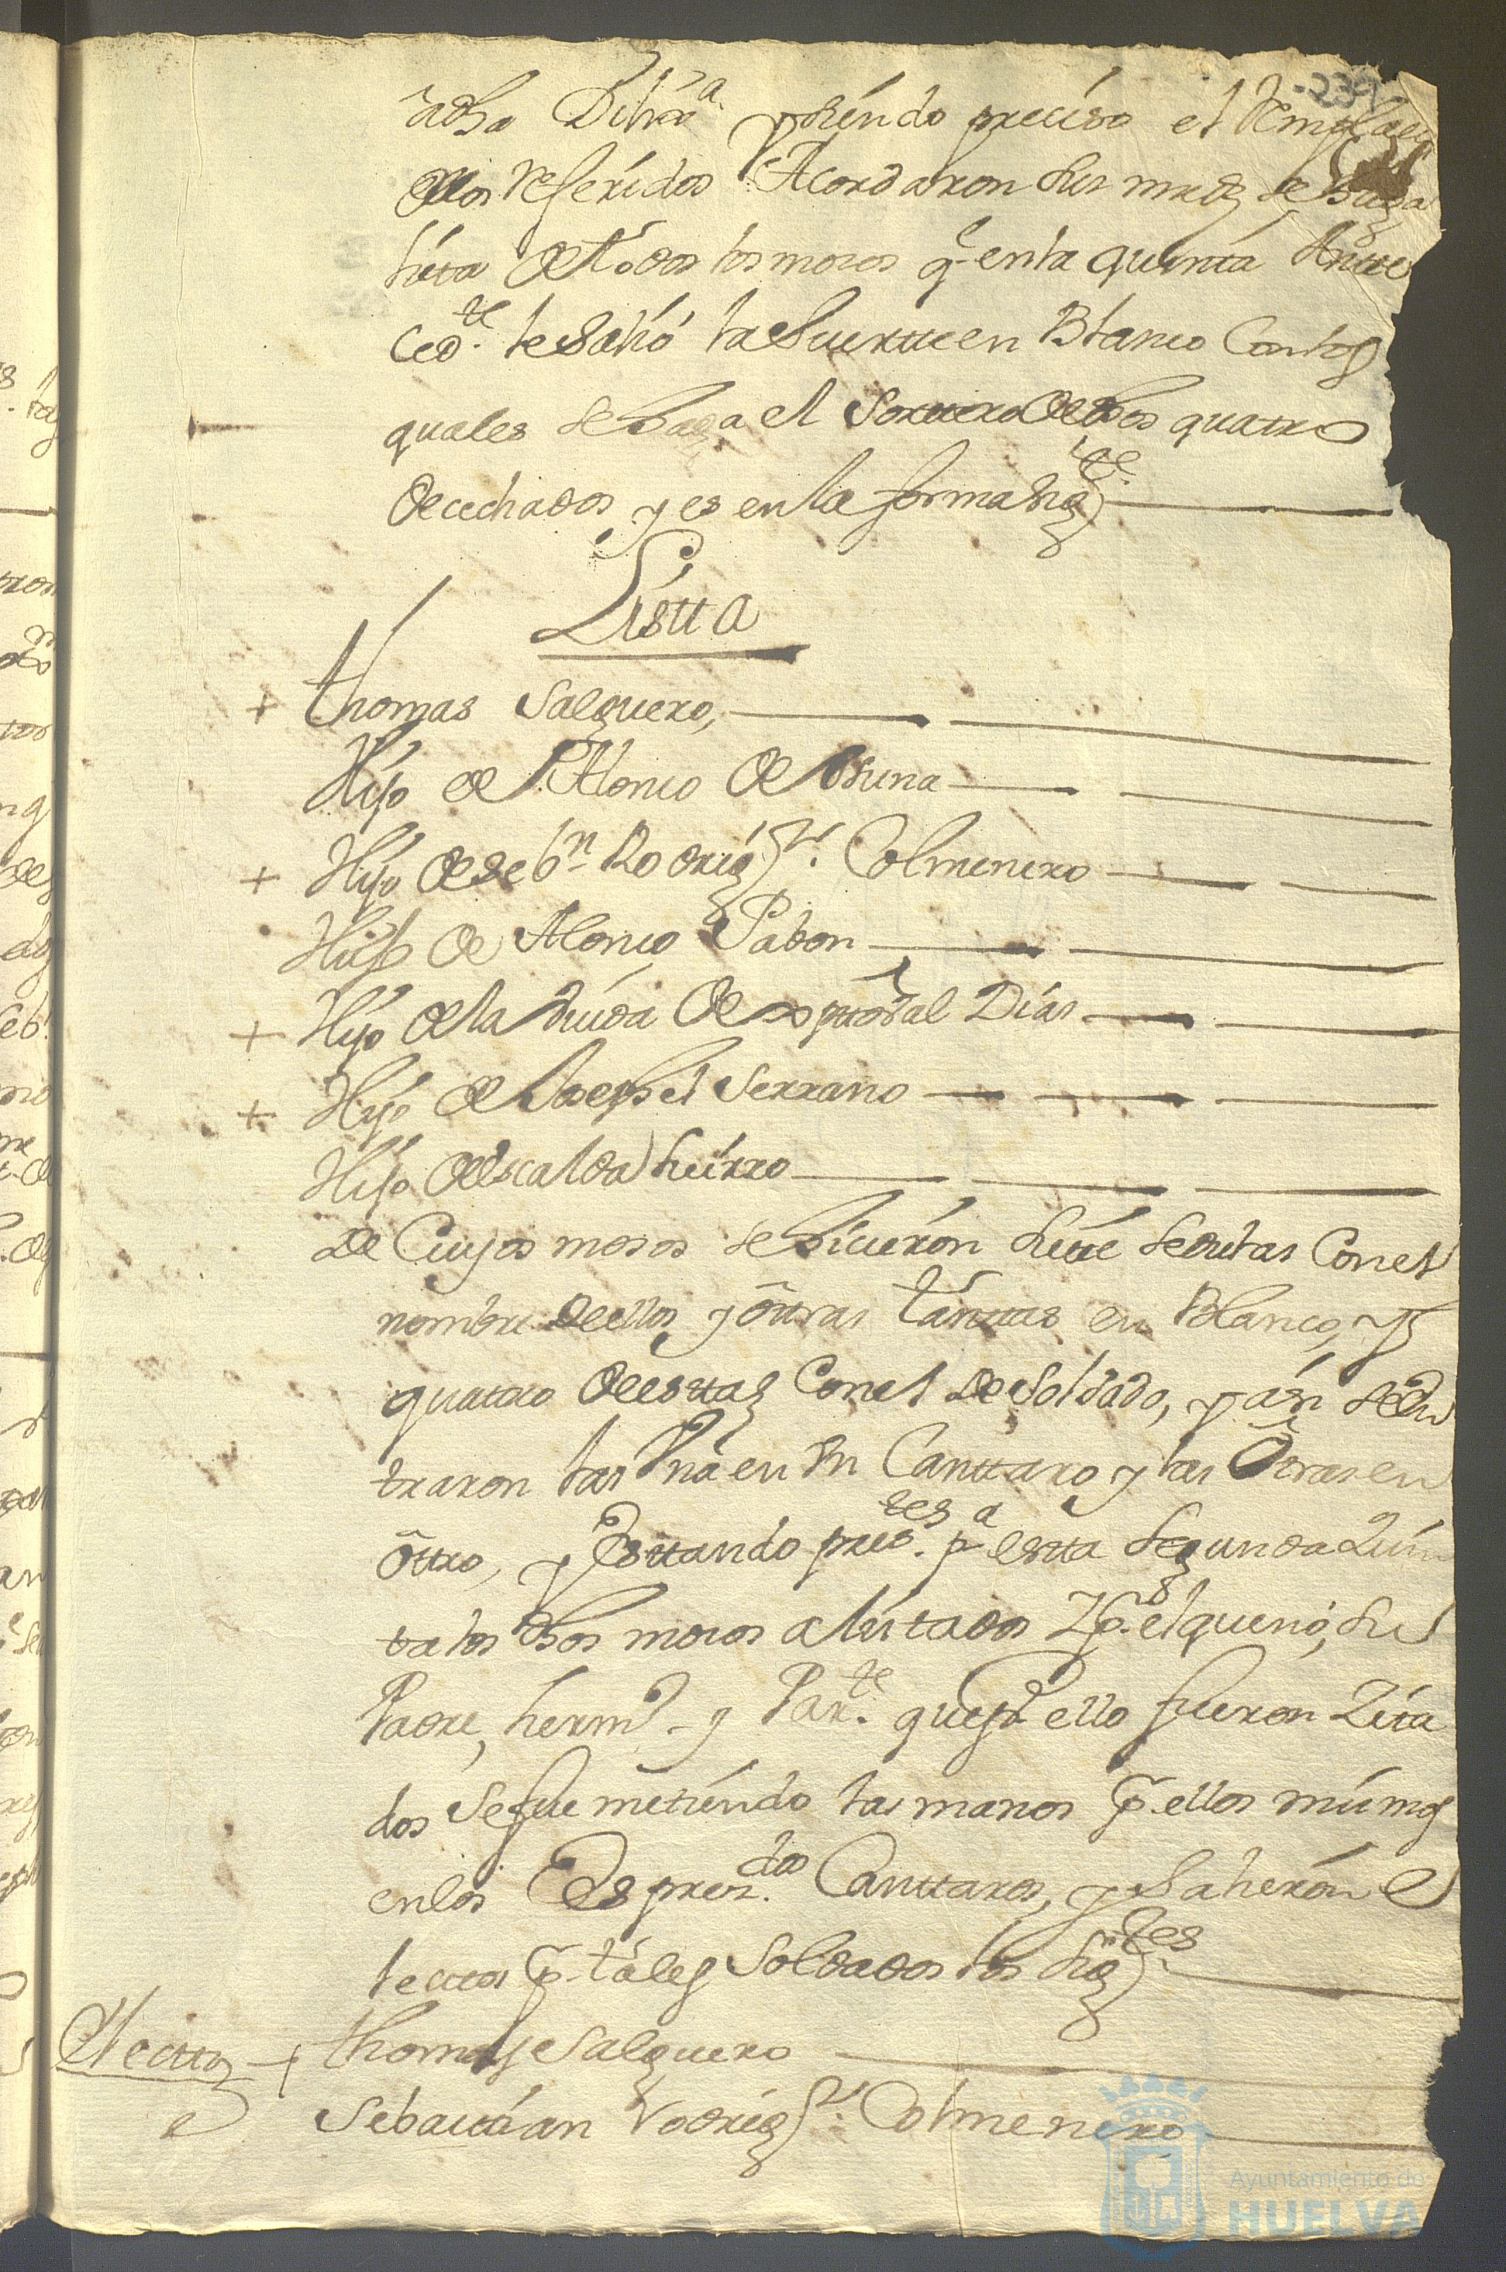 239
adha Dilixa. y siendo preciso el Remplazo
de los referidos Acordaron sus mrds. se haga
lista de todos los mosos q. en la quinta Antte
ced.te le salió la Suertte en Blanco Con los
quales se haga el Sorttero de dhos quatro
decechados y es en la forma sig.te
Listta
+ Thomas Salguero,
Hijo de Alonso de Osuna
+ Hijo de Seb.n Rodrig.s Colmenero
Hijo de Alonso Pabon
+ Hijo de la viuda de Xpttoval Dias
+ Hijo de Joseph el Serrano
Hijo de Escalda huirro
De Cuyos mosos se hicieron siette sedulas Con el
nombre de ellos y ôttras tanttas en Blanco, y
quattro de esttas Con el de Soldado, y asi se en
traron las Vna en Vn Canttaro y las Ôtras en
ôttro, y Esttando pres.tes p.a estta segunda Quin
ta los dhos mosos alistados Y p. el que no, su
Padre, herm.o y Par.te que p.a ello fueron Zita
dos se fue metiendo las manos p. ellos mismos
en los Expres.dos Canttaros, y Salieron e
lecttos p. tales Soldados los sig.tes
Electtos + Thomas Salguero
Sebasttian Rodrig.s Colmenero
Ayuntamiento de
HUELVA